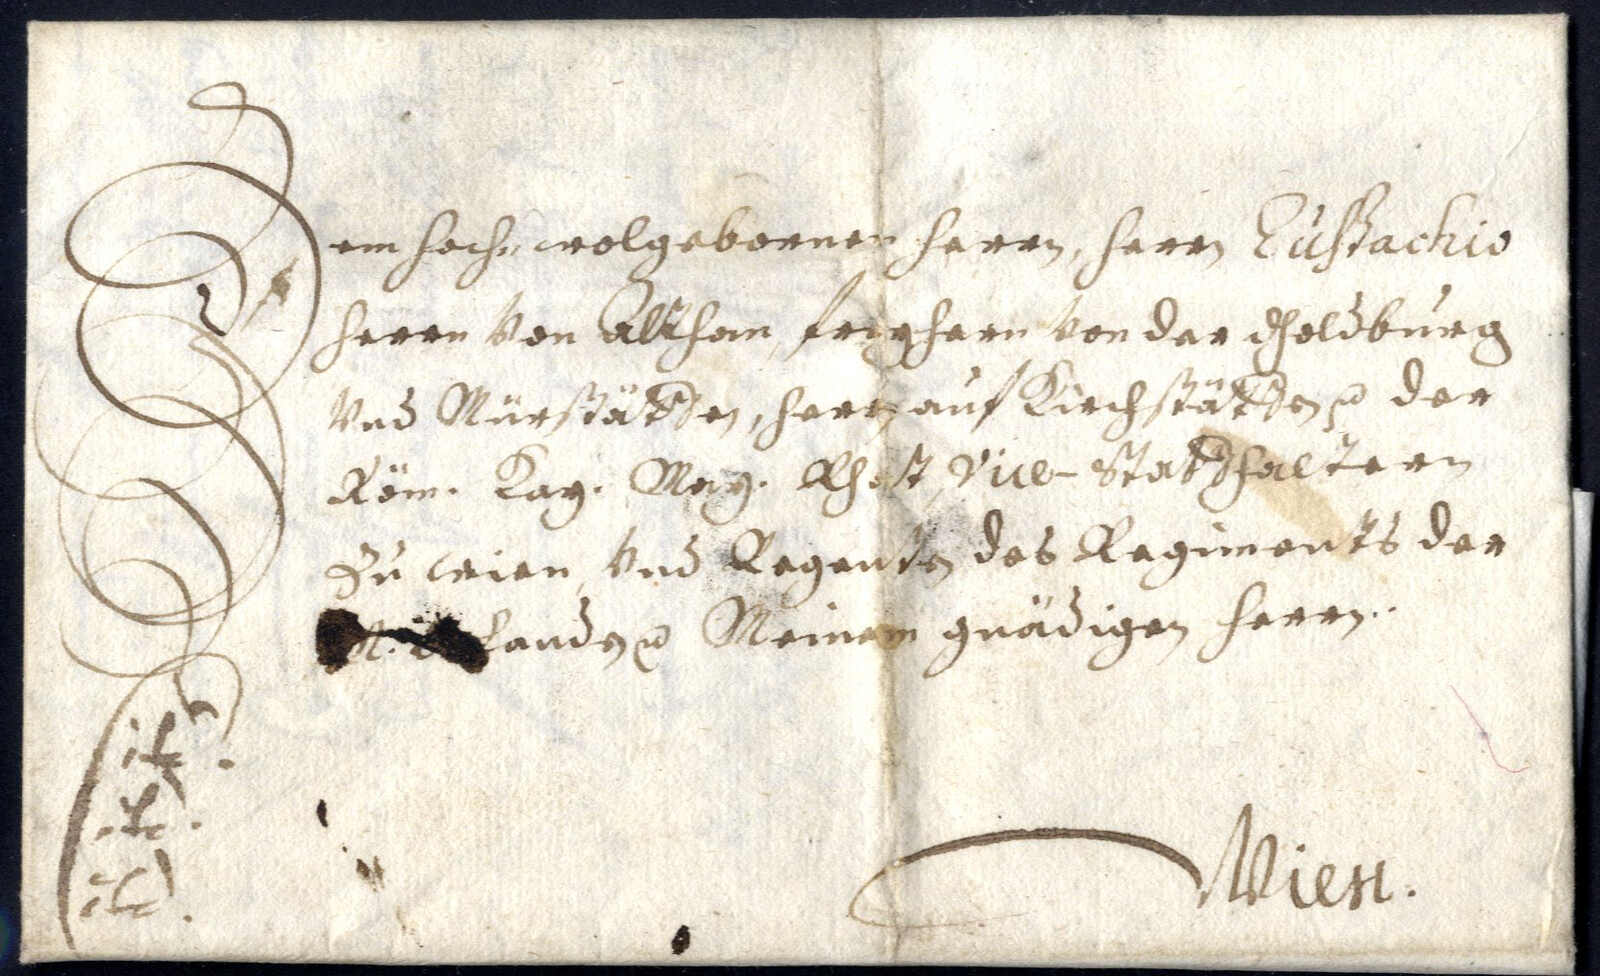 Dem hoch: wolgebornen Herrn, Herrn Eustachio
Herrn Von Althan, Freyhern Von der Goldburg
Vnd Mürstätten, Herr auf Kirchstätten der
Röm. Kay. May. Rhatt, Vice-Statthaltern
Zu Wien, Vnd Regenten des Regiments der
N. Ö. Landen Meinem gnädigen Herrn.
etc.
etc.
etc.
Wien.